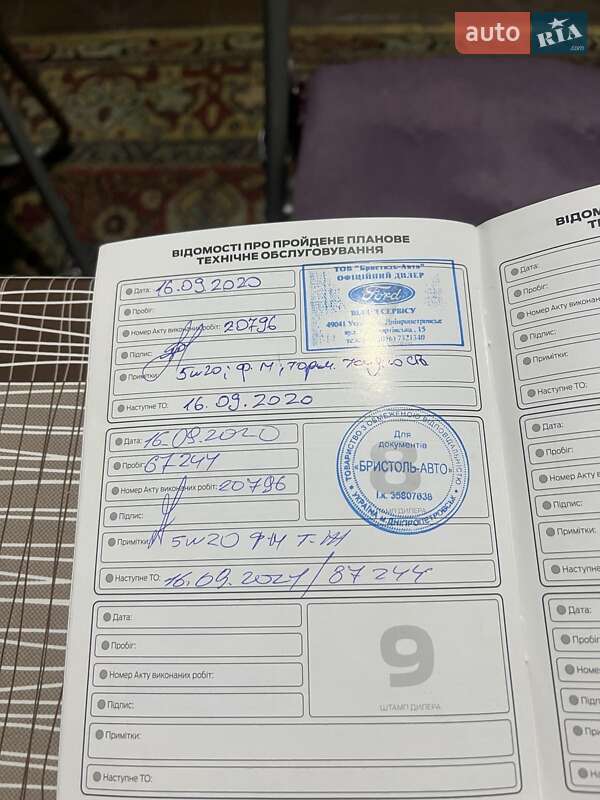 auto RIA.com
ВІДОМОСТІ ПРО ПРОЙДЕНЕ ПЛАНОВЕ
ТЕХНІЧНЕ ОБСЛУГОВУВАННЯ
Дата: 16.09.2020
Пробіг:
Номер Акту виконаних робіт: 20796
Підпис:
Примітки: 5w20; ф.м; торм.
Наступне ТО: 16.09.2020
ТОВ "Бристоль-Авто"
ОФІЦІЙНИЙ ДИЛЕР
Ford
ВІДДІЛ СЕРВІСУ
49041 Дніпропетровськ
15
7321340
Дата: 16.09.2020
Пробіг: 67244
Номер Акту виконаних робіт: 20796
Підпис:
Примітки: 5w20 ФМ Т-Ж
Наступне ТО: 16.09.2021/87244
8
ШТАМП ДИЛЕРА
ТОВАРИСТВО З ОБМЕЖЕНОЮ ВІДПОВІДАЛЬНІСТЮ
Для
документів
«БРИСТОЛЬ-АВТО»
І.к. 35807638
УКРАЇНА М.ДНІПРОПЕТРОВСЬК
Дата:
Пробіг:
Номер Акту виконаних робіт:
Підпис:
Примітки:
Наступне ТО:
9
ШТАМП ДИЛЕРА
ВІДОМ
ТЕ
Дата:
Пробіг:
Номер Акту виконан
Підпис:
Примітки:
Наступне ТО:
Дата:
Пробіг:
Номер Акту викона
Підпис:
Примітки:
Наступне
Дата:
Пробіг
Номер
Підпис:
Примітки
Наступне